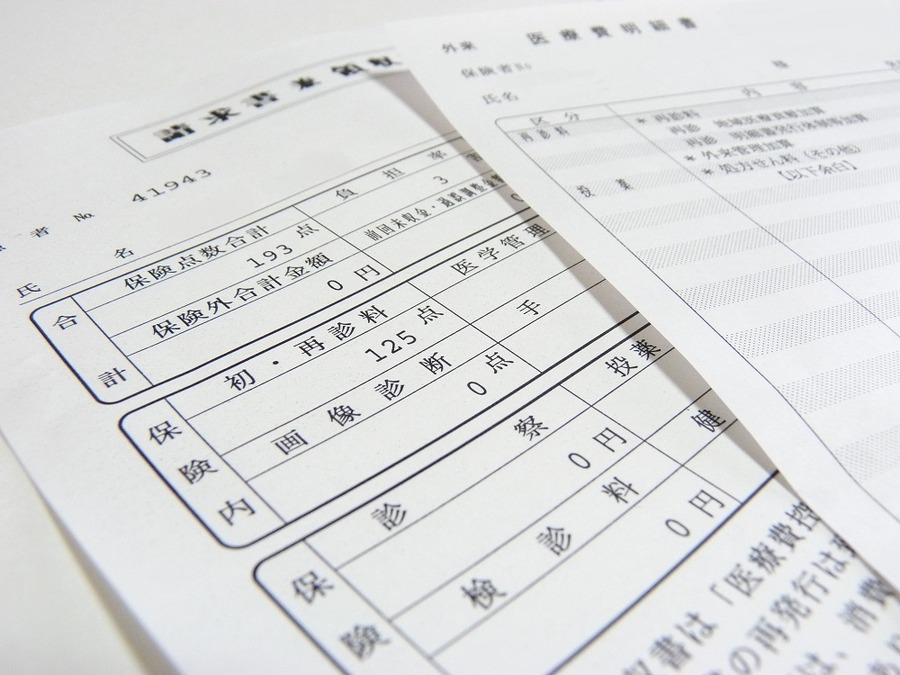 請求書兼領収
者 № 41943
氏 名
負担率
3
保険点数合計
193 点
前回未収金・過誤調整金
保険外合計金額
0 円
合計
初・再診料
125 点
医学管理
画像診断
0 点
手
投薬
保険内
診察
0 円
健
検診料
0 円
保険
収書は「医療費控
の再発行は
は、消費
外来 医療費明細書
保険者No
氏名 様
区分 内容
再診料 *再診料
再診 地域医療貢献加算
再診 明細書発行体制等加算
*外来管理加算
投薬 *処方せん料(その他)
【以下余白】